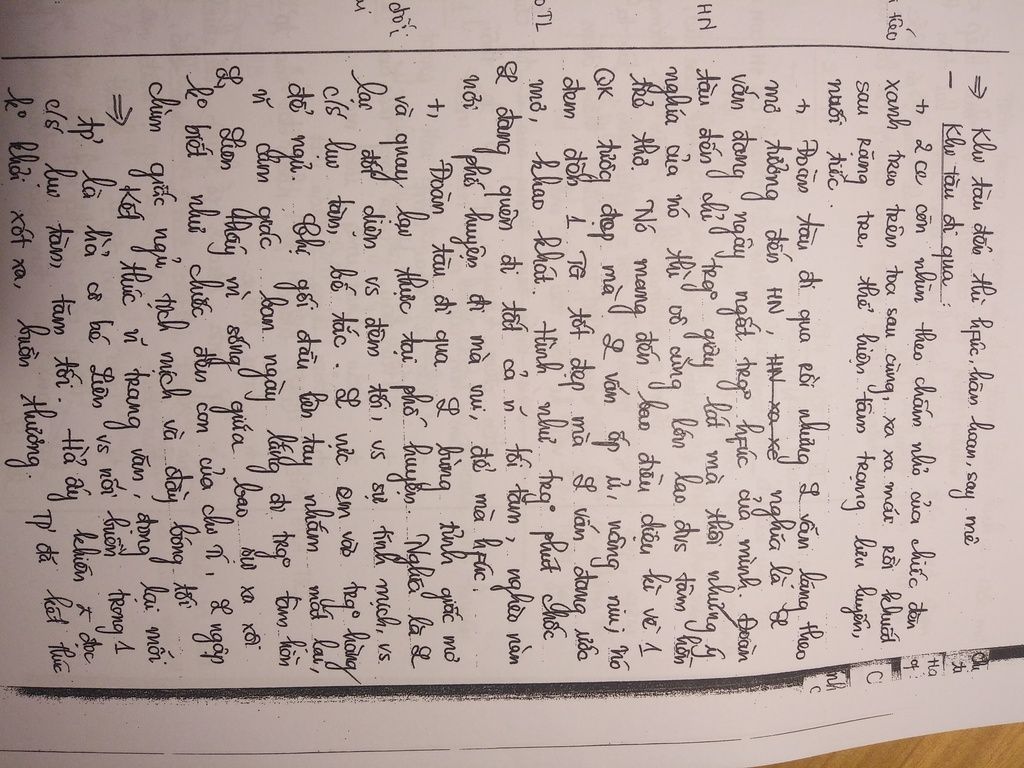 ⇒ Khi tàu đến thì hphúc, hân hoan, say mê
- Khi tàu đi qua:
+, 2 ce còn nhìn theo chấm nhỏ của chiếc đèn
xanh treo trên toa sau cùng, xa xa mãi rồi khuất
sau rặng tre, thể hiện tâm trạng lưu luyến,
nuối tiếc.
+, Đoàn tàu đi qua rồi nhưng L vẫn lặng theo
mơ tưởng đến HN, nghĩa là L
vẫn đang ngây ngất trg hphúc của mình. Đoàn
tàu đến chỉ trg giây lát mà thôi nhưng ý
nghĩa của nó thì vô cùng lớn lao đvs tâm hồn
thơ. Nó mang đến bao điều diệu kì về 1
QK tươi đẹp mà L vẫn ấp ủ, nâng niu; nó
đem đến 1 TG tốt đẹp mà L vẫn đang ước
mơ, khao khát. Hình như trg phút chốc
L đang quên đi tất cả n tối tăm, nghèo nàn
nơi phố huyện đi mà vui, để mà hphúc.
+, Đoàn tàu đi qua, L bừng tỉnh giấc mơ
và quay lại thực tại phố huyện. Nghĩa là L
lại đối diện vs đêm tối, vs sự tĩnh mịch, vs
c/s lụi tàn, bế tắc. L vực em vào trg hàng
để ngủ. Chị gối đầu lên tay nhắm mắt lại,
n cảm giác ban ngày lắng đi trg tâm hồn
L, Liên thấy mình sống giữa bao sự xa xôi
ko biết như chiếc đèn con của chị Tí, L ngập
chìm giấc ngủ, tịch mịch và đầy bóng tối
⇒ Kết thúc n trang văn, đọng lại mỗi
tp là h/a cô bé Liên vs nỗi buồn trong 1
c/s lụi tàn, tăm tối. Hả ấy TP đã kết thúc
ko khỏi xót xa, buồn thương.
HN